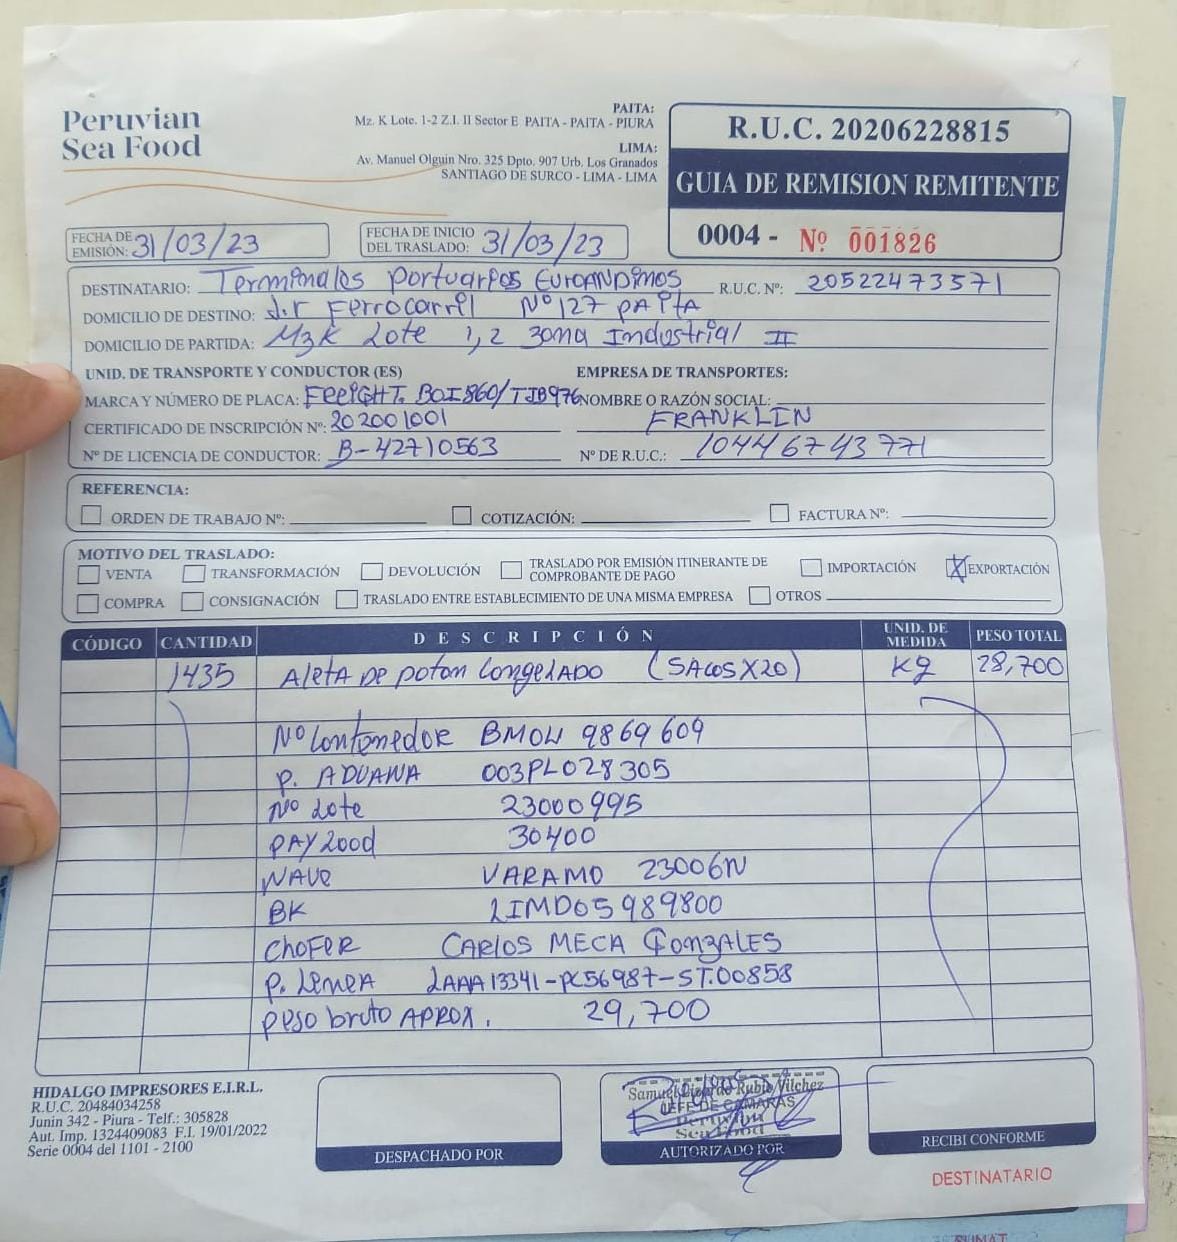 Peruvian
Sea Food
PAITA:
Mz. K Lote. 1-2 Z.I. II Sector E PAITA - PAITA - PIURA
LIMA:
Av. Manuel Olguin Nro. 325 Dpto. 907 Urb. Los Granados
SANTIAGO DE SURCO - LIMA - LIMA
R.U.C. 20206228815
GUIA DE REMISION REMITENTE
0004 - Nº 001826
FECHA DE EMISIÓN: 31/03/23
FECHA DE INICIO DEL TRASLADO: 31/03/23
DESTINATARIO: Terminales Portuarios EuroANDinos R.U.C. Nº: 20522473571
DOMICILIO DE DESTINO: J.r Ferrocarril Nº 127 PAitA
DOMICILIO DE PARTIDA: MzK Lote 1,2 Zona Industrial II
UNID. DE TRANSPORTE Y CONDUCTOR (ES) EMPRESA DE TRANSPORTES:
MARCA Y NÚMERO DE PLACA: FREIGHT. BOI860/TJB976 NOMBRE O RAZÓN SOCIAL:
CERTIFICADO DE INSCRIPCIÓN Nº: 202001001 FRANKLIN
Nº DE LICENCIA DE CONDUCTOR: B-42710563 Nº DE R.U.C.: 10446743771
REFERENCIA:
ORDEN DE TRABAJO Nº: COTIZACIÓN: FACTURA Nº:
MOTIVO DEL TRASLADO:
VENTA TRANSFORMACIÓN DEVOLUCIÓN TRASLADO POR EMISIÓN ITINERANTE DE COMPROBANTE DE PAGO IMPORTACIÓN X EXPORTACIÓN
COMPRA CONSIGNACIÓN TRASLADO ENTRE ESTABLECIMIENTO DE UNA MISMA EMPRESA OTROS
CÓDIGO CANTIDAD DESCRIPCIÓN UNID. DE MEDIDA PESO TOTAL
1435 Aleta de potan congelado (SAcos X20) Kg 28,700
Nº contenedor BMOU 9869609
P. ADUANA 003PL028305
Nº Lote 23000995
PAY2ood 30400
NAVe VARAMO 23006N
BK LIMD05989800
CHOFER CARLOS MECA GonzALES
P. LineA LAAA13341-PC56987-ST.00858
peso bruto APROX. 29,700
HIDALGO IMPRESORES E.I.R.L.
R.U.C. 20484034258
Junin 342 - Piura - Telf.: 305828
Aut. Imp. 1324409083 F.I. 19/01/2022
Serie 0004 del 1101 - 2100
DESPACHADO POR
Samuel Rubio Vilchez
JEFE DE CAMARAS
Peruvian
Sea Food
AUTORIZADO POR
RECIBI CONFORME
DESTINATARIO